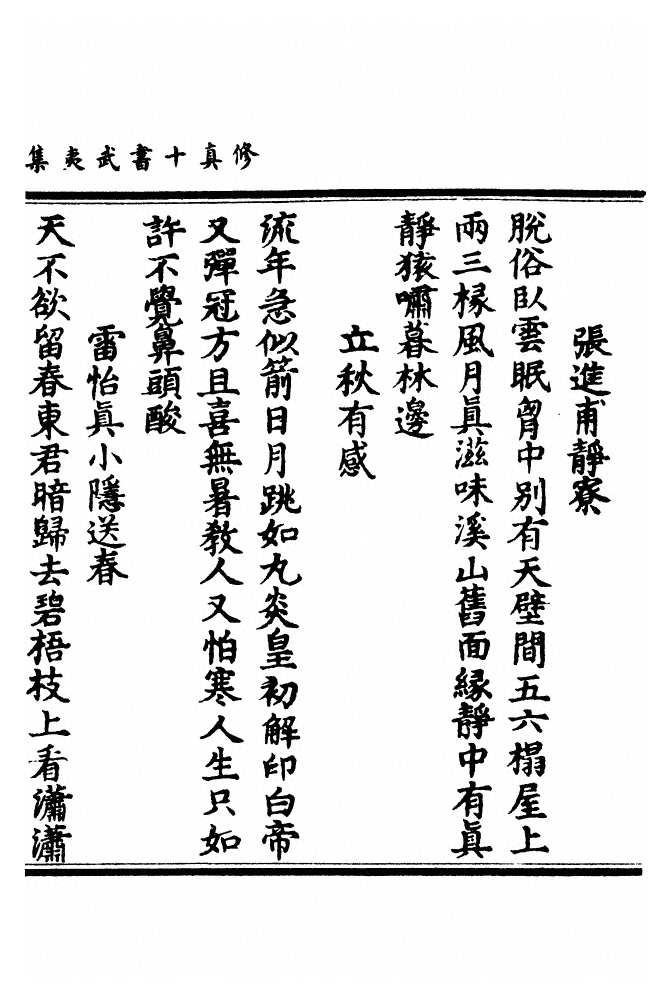 修真十書武夷集
張進甫靜寮
脫俗臥雲眠胷中別有天壁間五六榻屋上
兩三椽風月眞滋味溪山舊面緣靜中有眞
靜猿嘯暮林邊
立秋有感
流年急似箭日月跳如丸炎皇初解印白帝
又彈冠方且喜無暑教人又怕寒人生只如
許不覺鼻頭酸
雷怡眞小隱送春
天不欲留春東君暗歸去碧梧枝上看瀟瀟